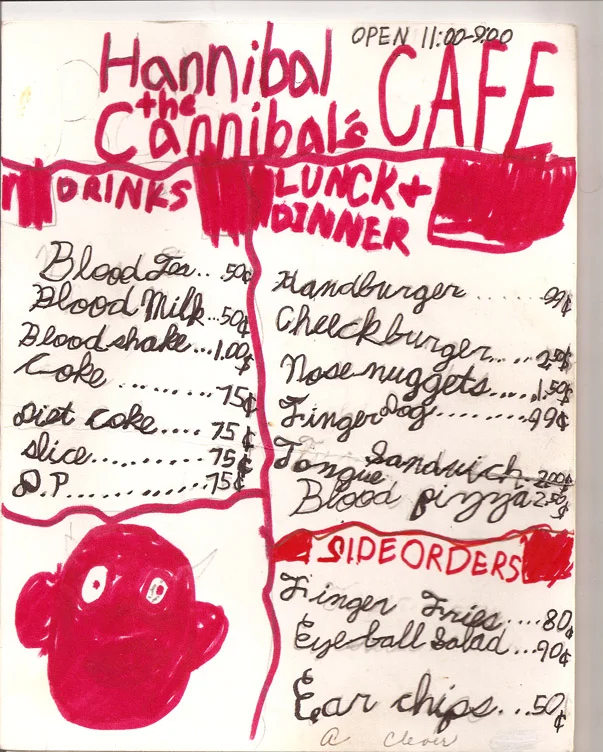 OPEN 11:00-9:00
Hannibal
the
Cannibal's CAFE
DRINKS
Blood Tea.. .50¢
Blood Milk...50¢
Bloodshake...1.00¢
Coke ........75¢
Diet Coke.....75¢
Slice..........75¢
D.P..........75¢
LUNCK+
DINNER
Handburger ......99¢
Cheeckburger.....2.50¢
Nose nuggets.....1.50¢
Finger Dog........99¢
Tongue Sandwich..2.00¢
Blood pizza 2.50¢
SIDEORDERS
Finger Fries....80¢
Eyeball Salad...90¢
Ear chips...50¢
a clever